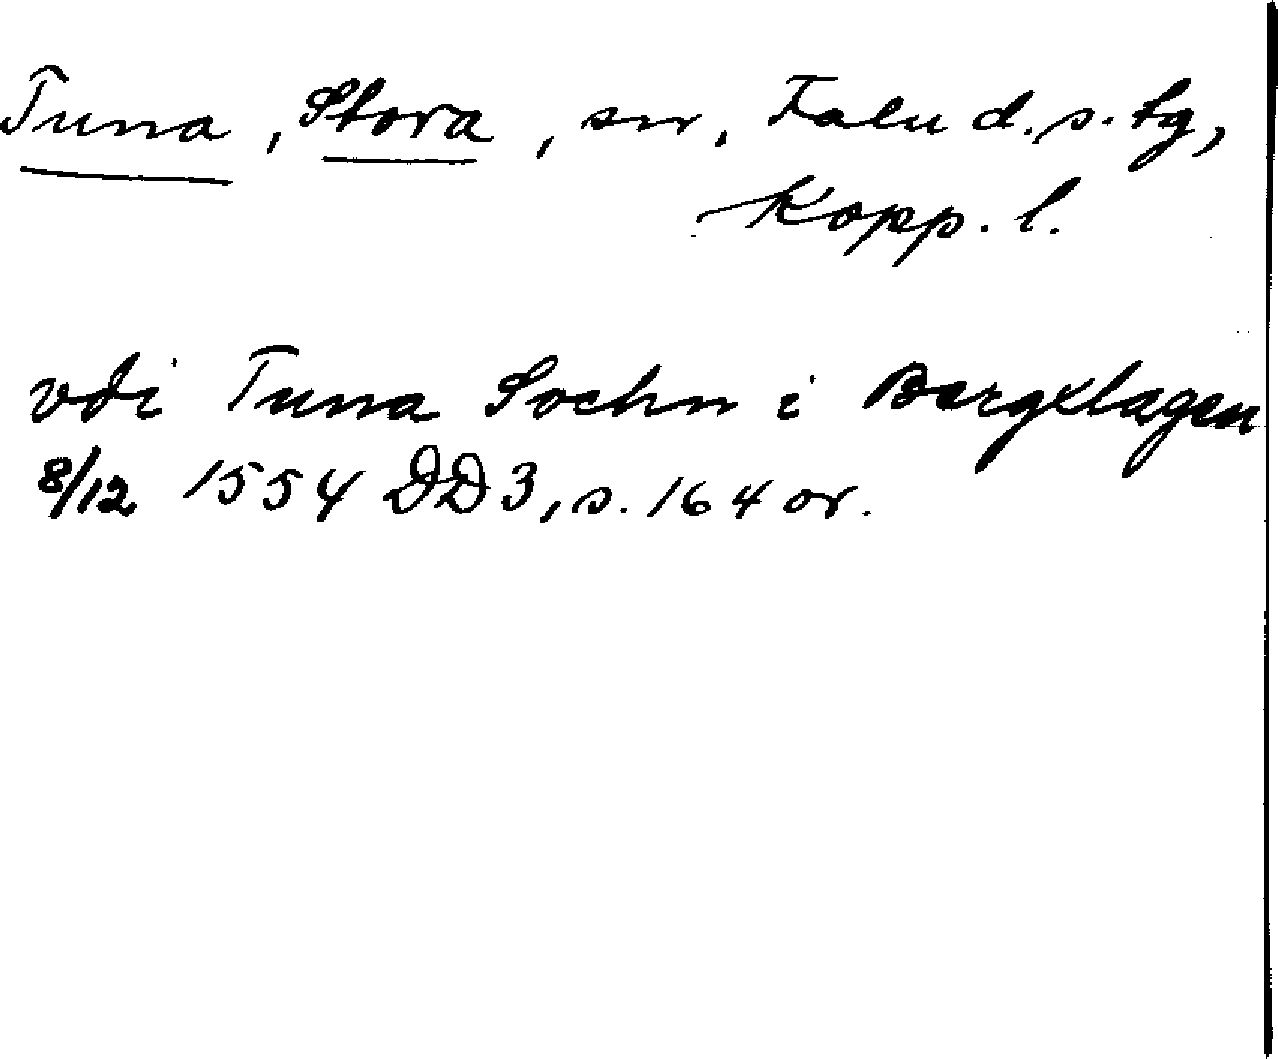 Tuna, Stora, sn, Falu d.s. tg,
Kopp. l.
vdi Tuna Sochn i Bergxlagen
8/12 1554 DD3, s. 164 or.